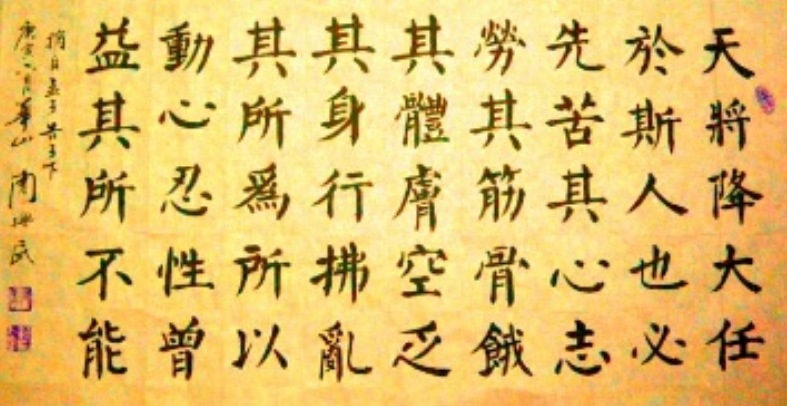 天將降大任
於斯人也必
先苦其心志
勞其筋骨餓
其體膚空乏
其身行拂亂
其所爲所以
動心忍性曾
益其所不能
摘自孟子告子下
庚寅 月華山